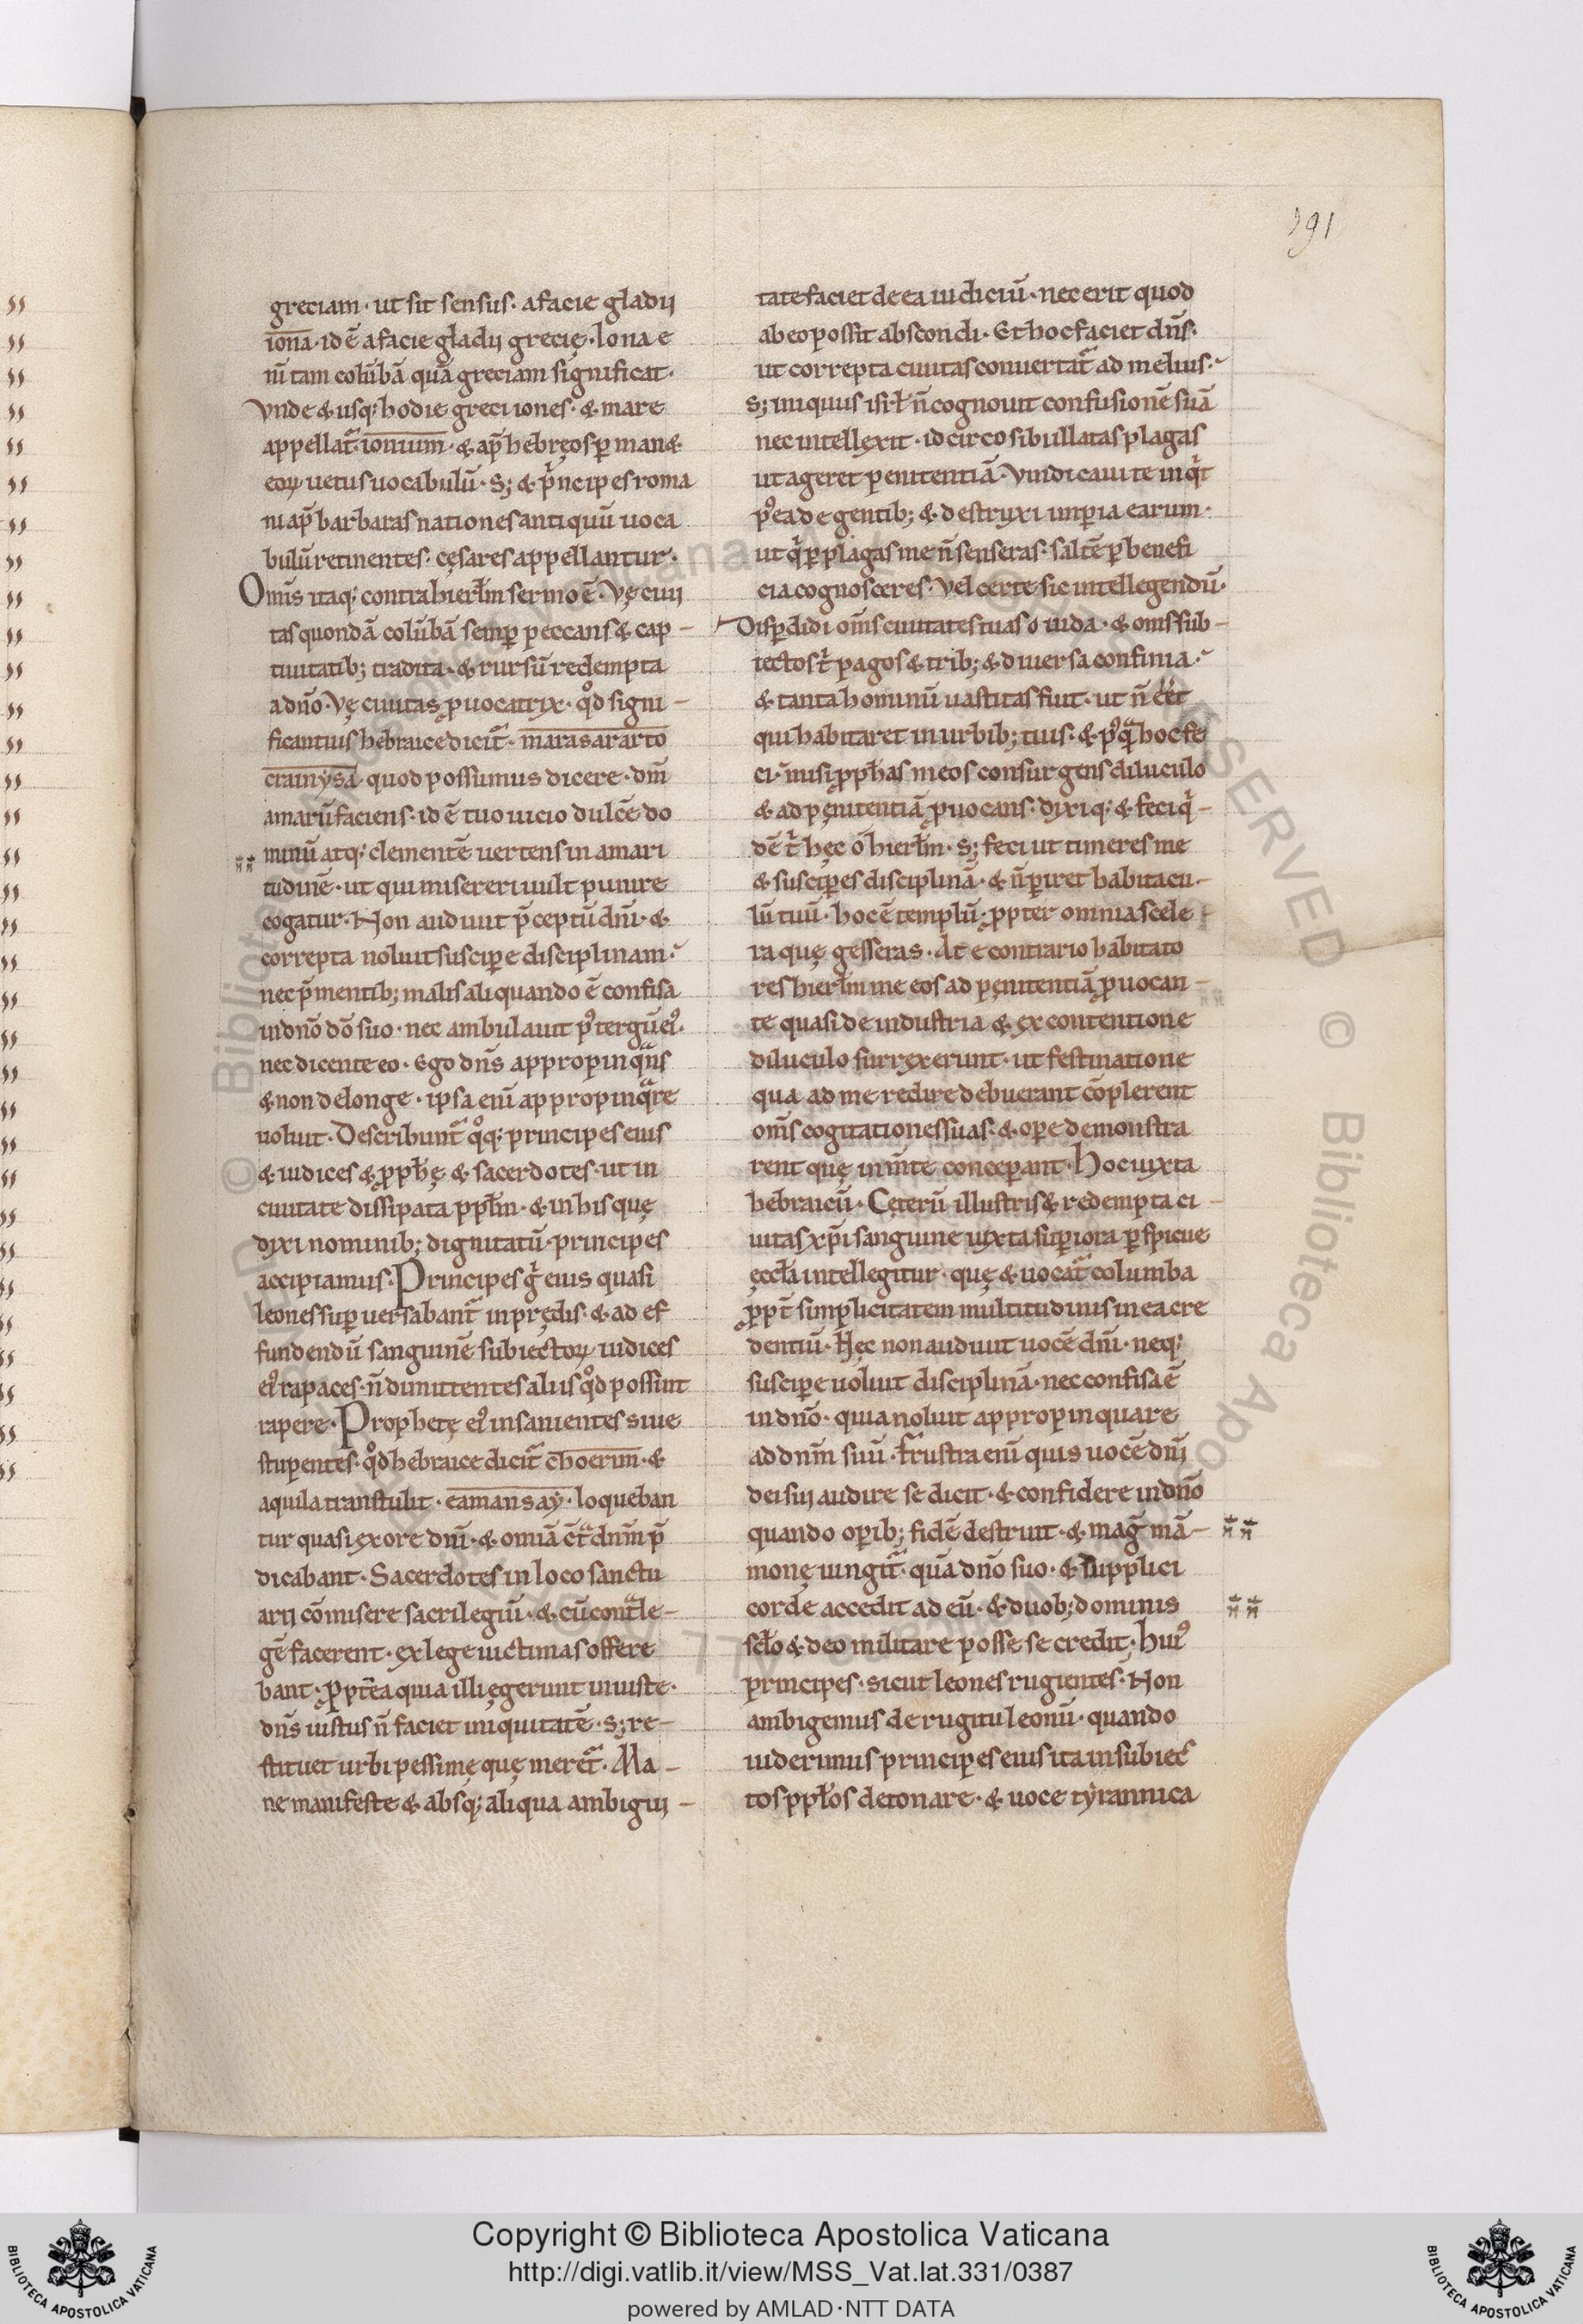 191
greciam· ut sit sensus· a facie gladij
iona· id ē a facie gladij greciȩ· Iona e
nī tam colūbā quā greciam significat·
Vnde & usq; hodie greci iones· & mare
appellat᷑ ionium· & ap̄ hebrȩos ꝑman&
eoꝝ uetus uocabulū· S; & p̄ncipes roma
ni ap̄ barbaras nationes antiquū uoca
bulū retinentes· cȩsares appellantur·
Om̄is itaq; contra hierlm̄ sermo ē· Vȩ ciui
tas quondā colūbā semꝑ peccans & cap-
tiuitatib; tradita· & rursū redempta
a dn̄o· Vȩ ciuitas ꝓuocatrix· qd̊ signi-
ficantius hebraice dicit᷑· marasararto
crainysa· quod possumus dicere· dn̄m
amarū faciens· id ē tuo uicio dulcē do
minū atq; clementē uertens in amari
tudinē· ut qui misereri uult punire
cogatur· Non audiuit p̄ceptū dn̄i· &
correpta noluit suscipꝑe disciplinam·
nec p̄mentib; malis aliquando ē confisa
in dn̄o dō suo· nec ambulauit pꝰ tergū eiꝰ·
nec dicente eo· Ego dn̄s appropinqns
& non de longe· ipsa eni appropinqre
noluit· Describunt᷑ qͦq; principes eius
& iudices & ꝓph̄ȩ & sacerdotes· ut in
ciuitate dissipata ppl̄m· & in his quȩ
dixi nominib; dignitatū· principes
accipiamus· Principes g̊ eius quasi
leones suꝑ uersabant᷑ in prȩdis· & ad ef
fundendū sanguinē subiectoꝝ iudices
eiꝰ rapaces· n̄ dimittentes aliis qd̊ possint
rapere· Prophetȩ eiꝰ insanientes siue
stupentes· qd̊ hebraice dicit᷑ choerim· &
aquila transtulit· eamansay· loqueban
tur quasi ex ore dn̄i· & om̄ia ct̄ dnm̄ p̄
dicabant· Sacerdotes in loco sanctu
arij cōmisere sacrilegiū· & cū contle-
gē facerent· ex lege uictimas offere
bant· ꝓpt̄ea quia illi ȩgerunt iniuste·
dn̄s iustus n̄ faciet iniquitatē· S; re-
stituet urbi pessimȩ quȩ meret᷑· Ma-
ne manifeste & absq; aliqua ambigui-
tate faciet de ea iudiciū· nec erit quod
ab eo possit abscondi· Et hoc faciet dn̄s·
ut correpta ciuitas conuertat᷑ ad melius·
S; iniquus isrl̄ n̄ cognouit confusionē suā
nec intellexit· idcirco sibi illatas plagas
ut ageret penitentiā· Vindicaui te inqt
pꝰea de gentib; & destruxi imꝑia earum·
ut q̊ ꝑ plagas me n̄ senseras· saltē ꝑ benefi
cia cognosceres· Vel certe sic intellegendū·
Disꝑdidi om̄s ciuitates tuas o iuda· & om̄s sub-
iectos t̊ pagos & trib; & diuersa confinia·
& tanta hominū uastitas fiut· ut n̄ eet
qui habitaret in urbib; tuis· & pꝰq hoc fe
ci· nisi ꝓph̄as meos consurgens diluculo
& ad pȩnitentiā ꝓuocans· dixiq; & feci q̊-
dē t̊ hȩc o hierlm̄· S; feci ut timeres me
& susciꝑes disciplinā· & n̄ ꝑiret habitacu-
lū tuū· hoc ē templū· ꝓpter omnia scele
ra quȩ gesseras· At e contrario habitato
res hierlm̄ me eos ad pȩnitentiā ꝓuocan-
te quasi de industria & ex contentione
diluculo surrexerunt· ut festinatione
qua ad me redire debuerant cōplerent
om̄s cogitationes suas· & oꝑe demonstra
rent quȩ in m̄te conceꝑant· Hoc iuxta
hebraicū· Cȩterū illustris & redempta ci-
uitas xp̄i sanguine iuxta suꝑiora ꝑspicue
ȩccl̄a intellegitur· quȩ & uocat᷑ columba
ꝓpt̄ simplicitatem multitudinis in ea cre
dentiū· Hȩc non audiuit uocē dn̄i· neq;
susciꝑe uoluit disciplinā· nec confisa ē
in dn̄o· quia noluit appropinquare
ad dnm̄ suū· frustra eni quis uocē dn̄i
dei sui audire se dicit· & confidere in dn̄o
quando oꝑib; fidē destruit· & mag̅ mā-
monȩ iungit᷑· quā dn̄o suo· & supplici
corde accedit ad eū· & duob; dominis
scl̄o & deo militare posse se credit· Huiꝰ
principes· sicut leones rugientes· Non
ambigemus de rugitu leonū· quando
uiderimus principes eius ita in subiec
tos ppl̄os detonare· & uoce tyrannica
Copyright © Biblioteca Apostolica Vaticana
http://digi.vatlib.it/view/MSS_Vat.lat.331/0387
powered by AMLAD·NTT DATA